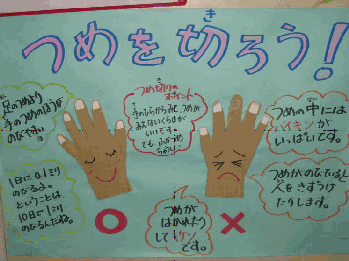 つめを切ろう!
き
足のつめより
手のつめのほうが
のびやすいよ
1日に0.1ミリ
のびるよ。
ということは
10日で1ミリ
のびるんだね。
つめ切りの
ポイント
手のひらからみて、つめが
みえないくらいが
いいです。
でも、ふかづめ
ちゅうい
つめの中には
バイキンが
いっぱいです。
つめがのびていると
人をきずつけ
たりします。
つめが
はがれたり
してキケン
です。